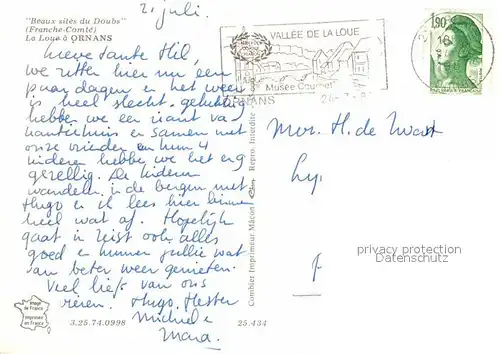 "Beaux sites du Doubs"
(Franche-Comté)
La Loue à ORNANS
21 juli
Lieve tante Hil,
we zitten hier nu een
paar dagen en het weer
is heel slecht. gelukkig
hebben we een riant va-
kantiehuis en samen met
onze vrienden en hun 4
kinderen hebben we het erg
gezellig. De kinderen
wandelen in de bergen met
Hugo en ik lees hier binnen
heel wat af. Hopelijk
gaat in Zeist ook alles
goed en kunnen jullie wat
van beter weer genieten.
Veel liefs van ons
Hugo, Hester
Michiel
Mara.
Image
de France
Imprimée
en France
3.25.74.0998
25.434
Combier Imprimeur Mâcon
Repro. Interdite
VALLÉE DE LA LOUE
Musée Courbet
ORNANS
1,90
16
Mevr. H. de
privacy protection
Datenschutz